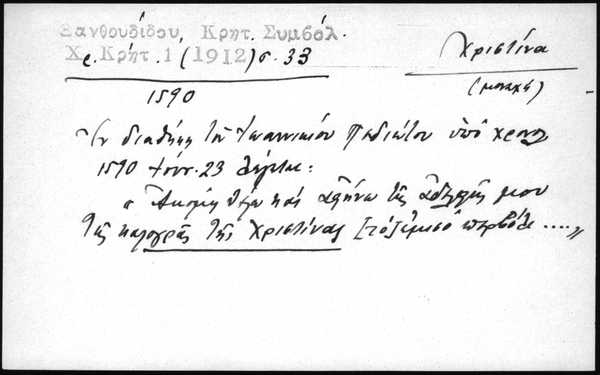 Ξανθουδίδου, Κρητ. Συμβόλ.
Χρ. Κρήτ. 1 (1912) σ. 33
Χριστίνα
(μοναχή)
1590
Ἐν διαθήκῃ τοῦ Ἰωαννικίου Πεδιώτου ὑπὸ χρονολ.
1590 Ἰουν. 23 λέγεται:
" Ἀκομὴ θέλω καὶ ἀφήνω τῆς ἀδελφῆς μου
τῆς καλογρᾶς τῆς Χριστίνας τὸ ....„